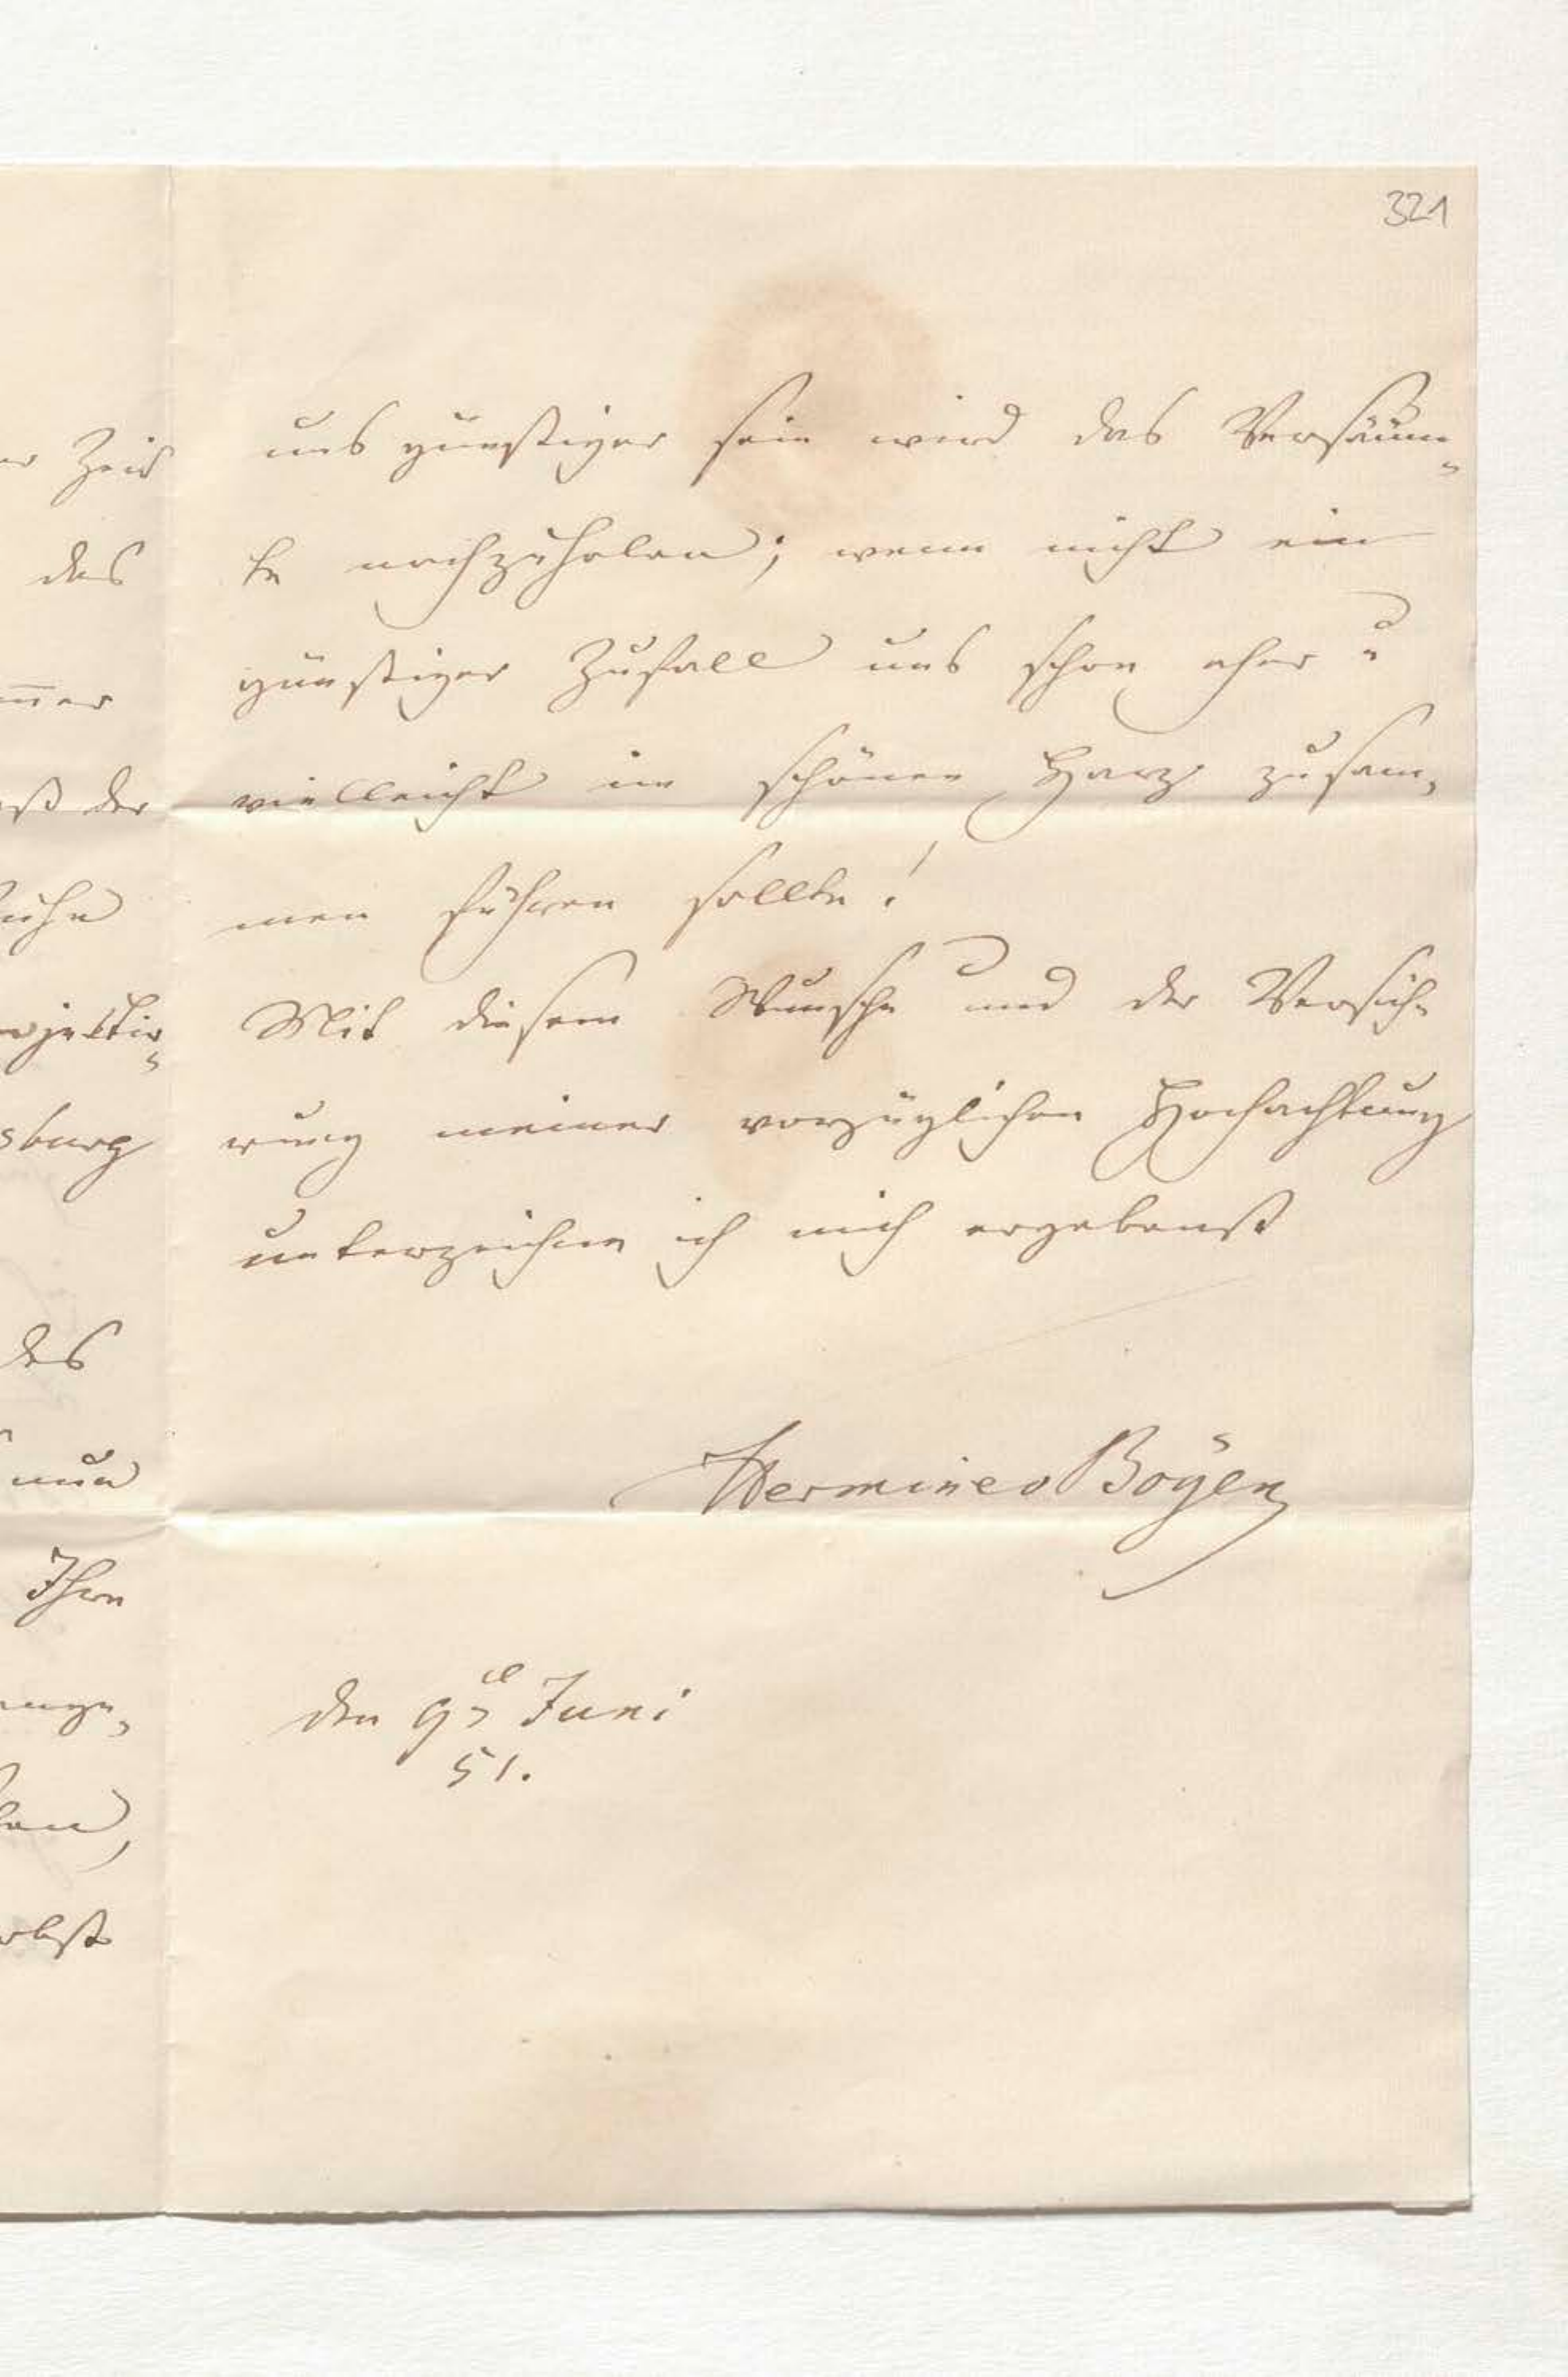 321
uns günstiger sein wird das Versäum-
te nachzuholen; wenn nicht ein
günstiger Zufall uns schon eher u
vielleicht im schönen Harz zusam-
men führen sollte!
Mit diesem Wunsche und der Versiche
rung meiner vorzüglichen Hochachtung
unterzeichne ich mich ergebenst
Hermine Böyen
den 9 Juni
51.
Zeit
das
der
sburg
des
nun
Ihre